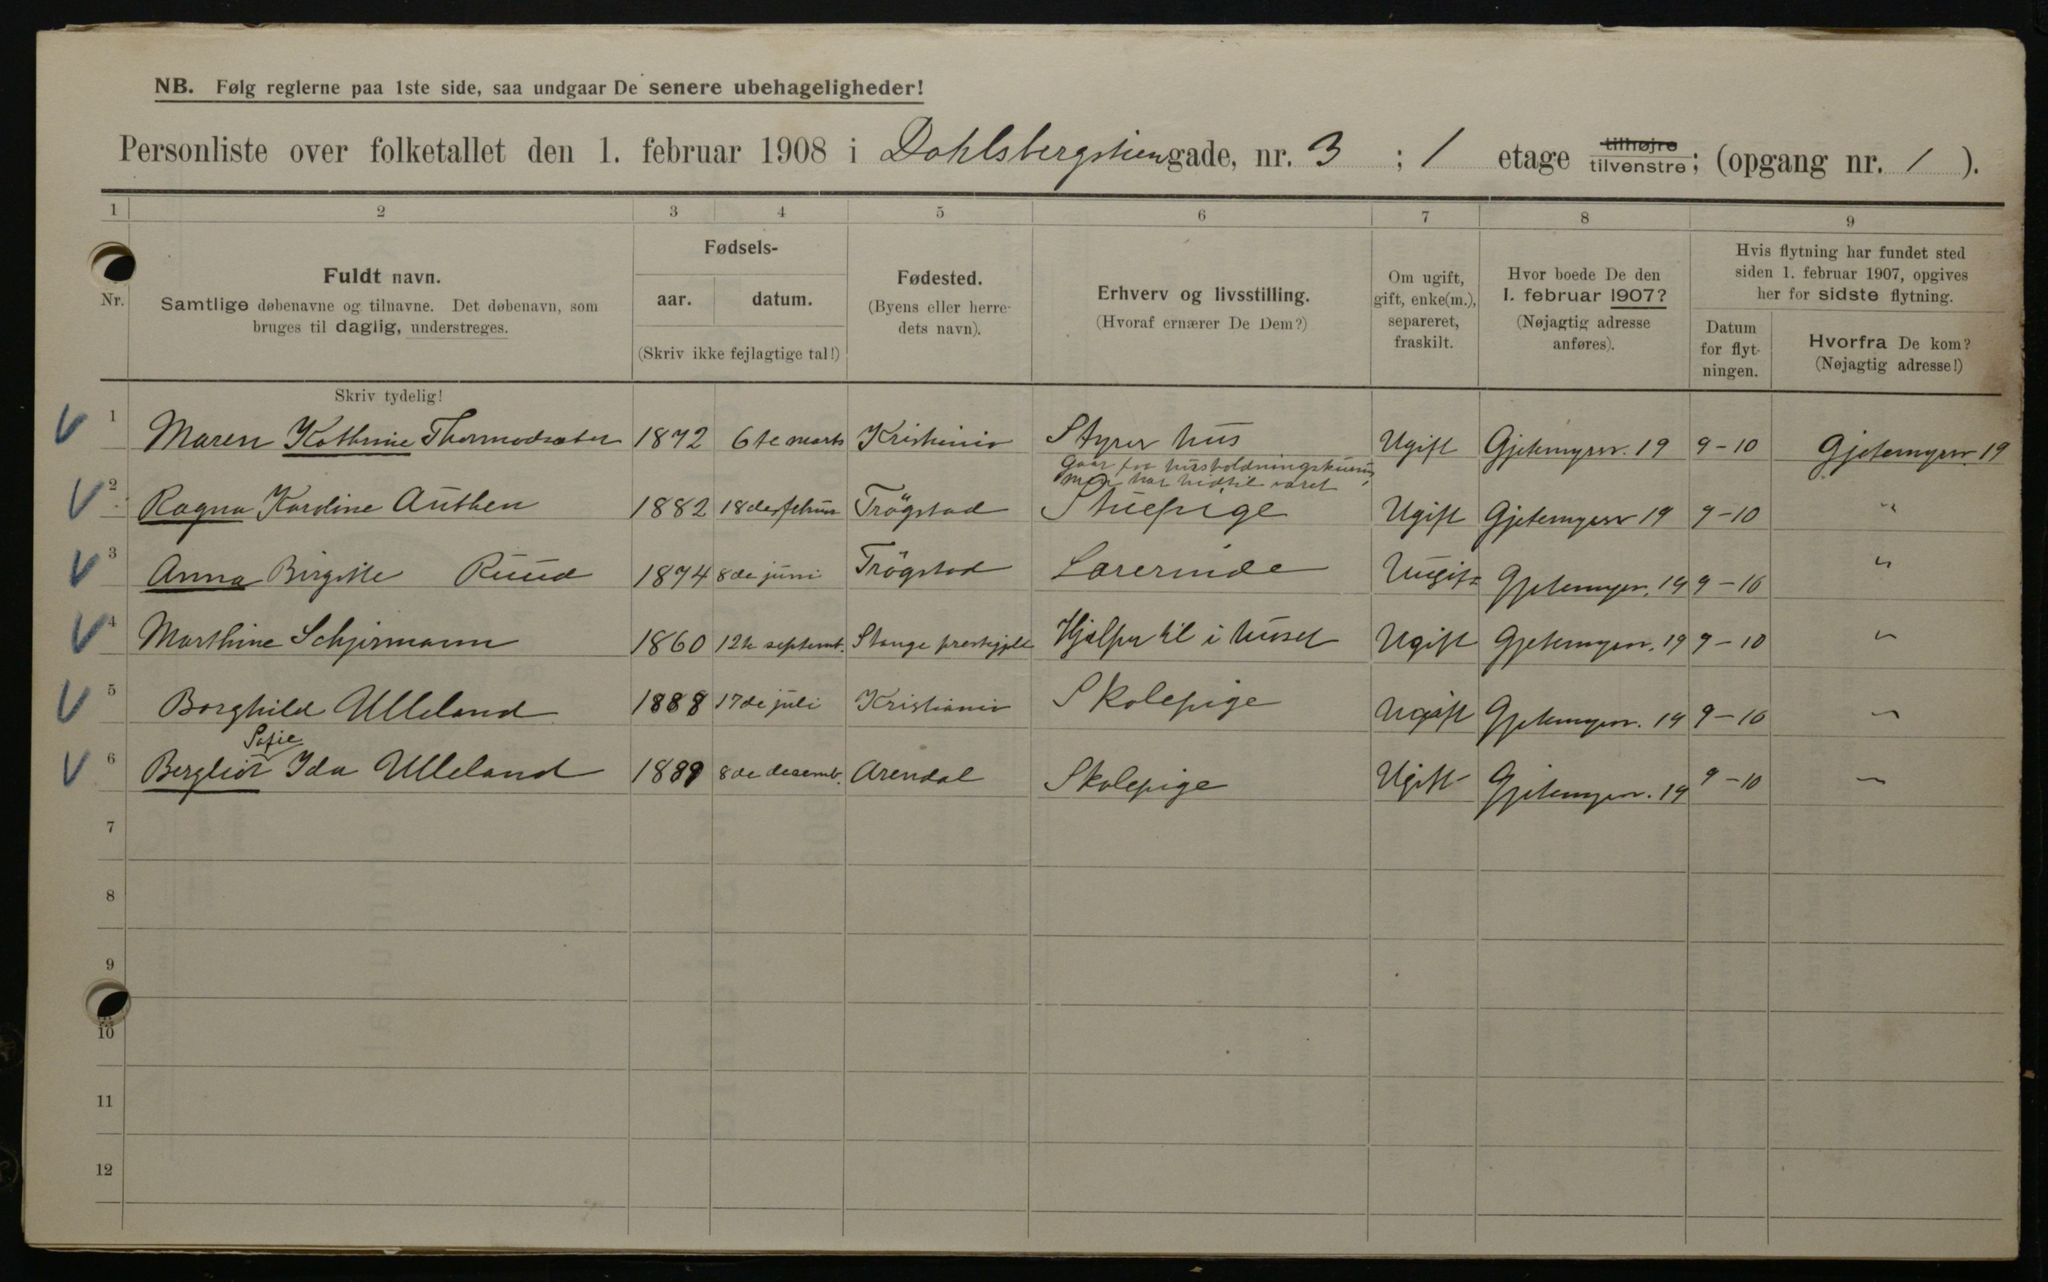 NB. Følg reglerne paa 1ste side, saa undgaar De senere ubehageligheder!
Personliste over folketallet den 1. februar 1908 i Dahlsbergstiengade, nr. 3 ; 1 etage tilhøjre tilvenstre; (opgang nr. 1 ).
1 2 3 4 5 6 7 8 9
Nr.
Fuldt navn.
Samtlige døbenavne og tilnavne. Det døbenavn, som
bruges til daglig, understreges.
Skriv tydelig!
Fødsels-
aar. datum.
(Skriv ikke fejlagtige tal!)
Fødested.
(Byens eller herre-
dets navn).
Erhverv og livsstilling.
(Hvoraf ernærer De Dem?)
Om ugift,
gift, enke(m.),
separeret,
fraskilt.
Hvor boede De den
1. februar 1907?
(Nøjagtig adresse
anføres).
Hvis flytning har fundet sted
siden 1. februar 1907, opgives
her for sidste flytning.
Datum
for flyt-
ningen.
Hvorfra De kom?
(Nøjagtig adresse!)
1 Maren Kathrine Thormodsæter 1872 6te marts Kristiania Styrer hus Ugift Gjetemyrsv. 19 9-10 Gjetemyrsv. 19
Gaar paa husholdningskursus,
men har hidtil været
2 Ragna Karoline Authen 1882 18de februar Trögstad Stuepige Ugift Gjetemyrsv 19 9-10 "
3 Anna Birgitte Ruud 1874 8de juni Trögstad Lærerinde Uugift Gjetemyrsv. 19 9-10 "
4 Marthine Schjirmann 1860 12te septemb. Stange prestegjeld Hjælper til i huset Ugift Gjetemyrsv. 19 9-10 "
5 Borghild Ulleland 1888 17de juli Kristiania Skolepige Ugift Gjetemyrsv. 19 9-10 "
6 Bergliot Sofie Ida Ulleland 1889 8de desemb. Arendal Skolepige Ugift Gjetemyrsv. 19 9-10 "
7
8
9
10
11
12